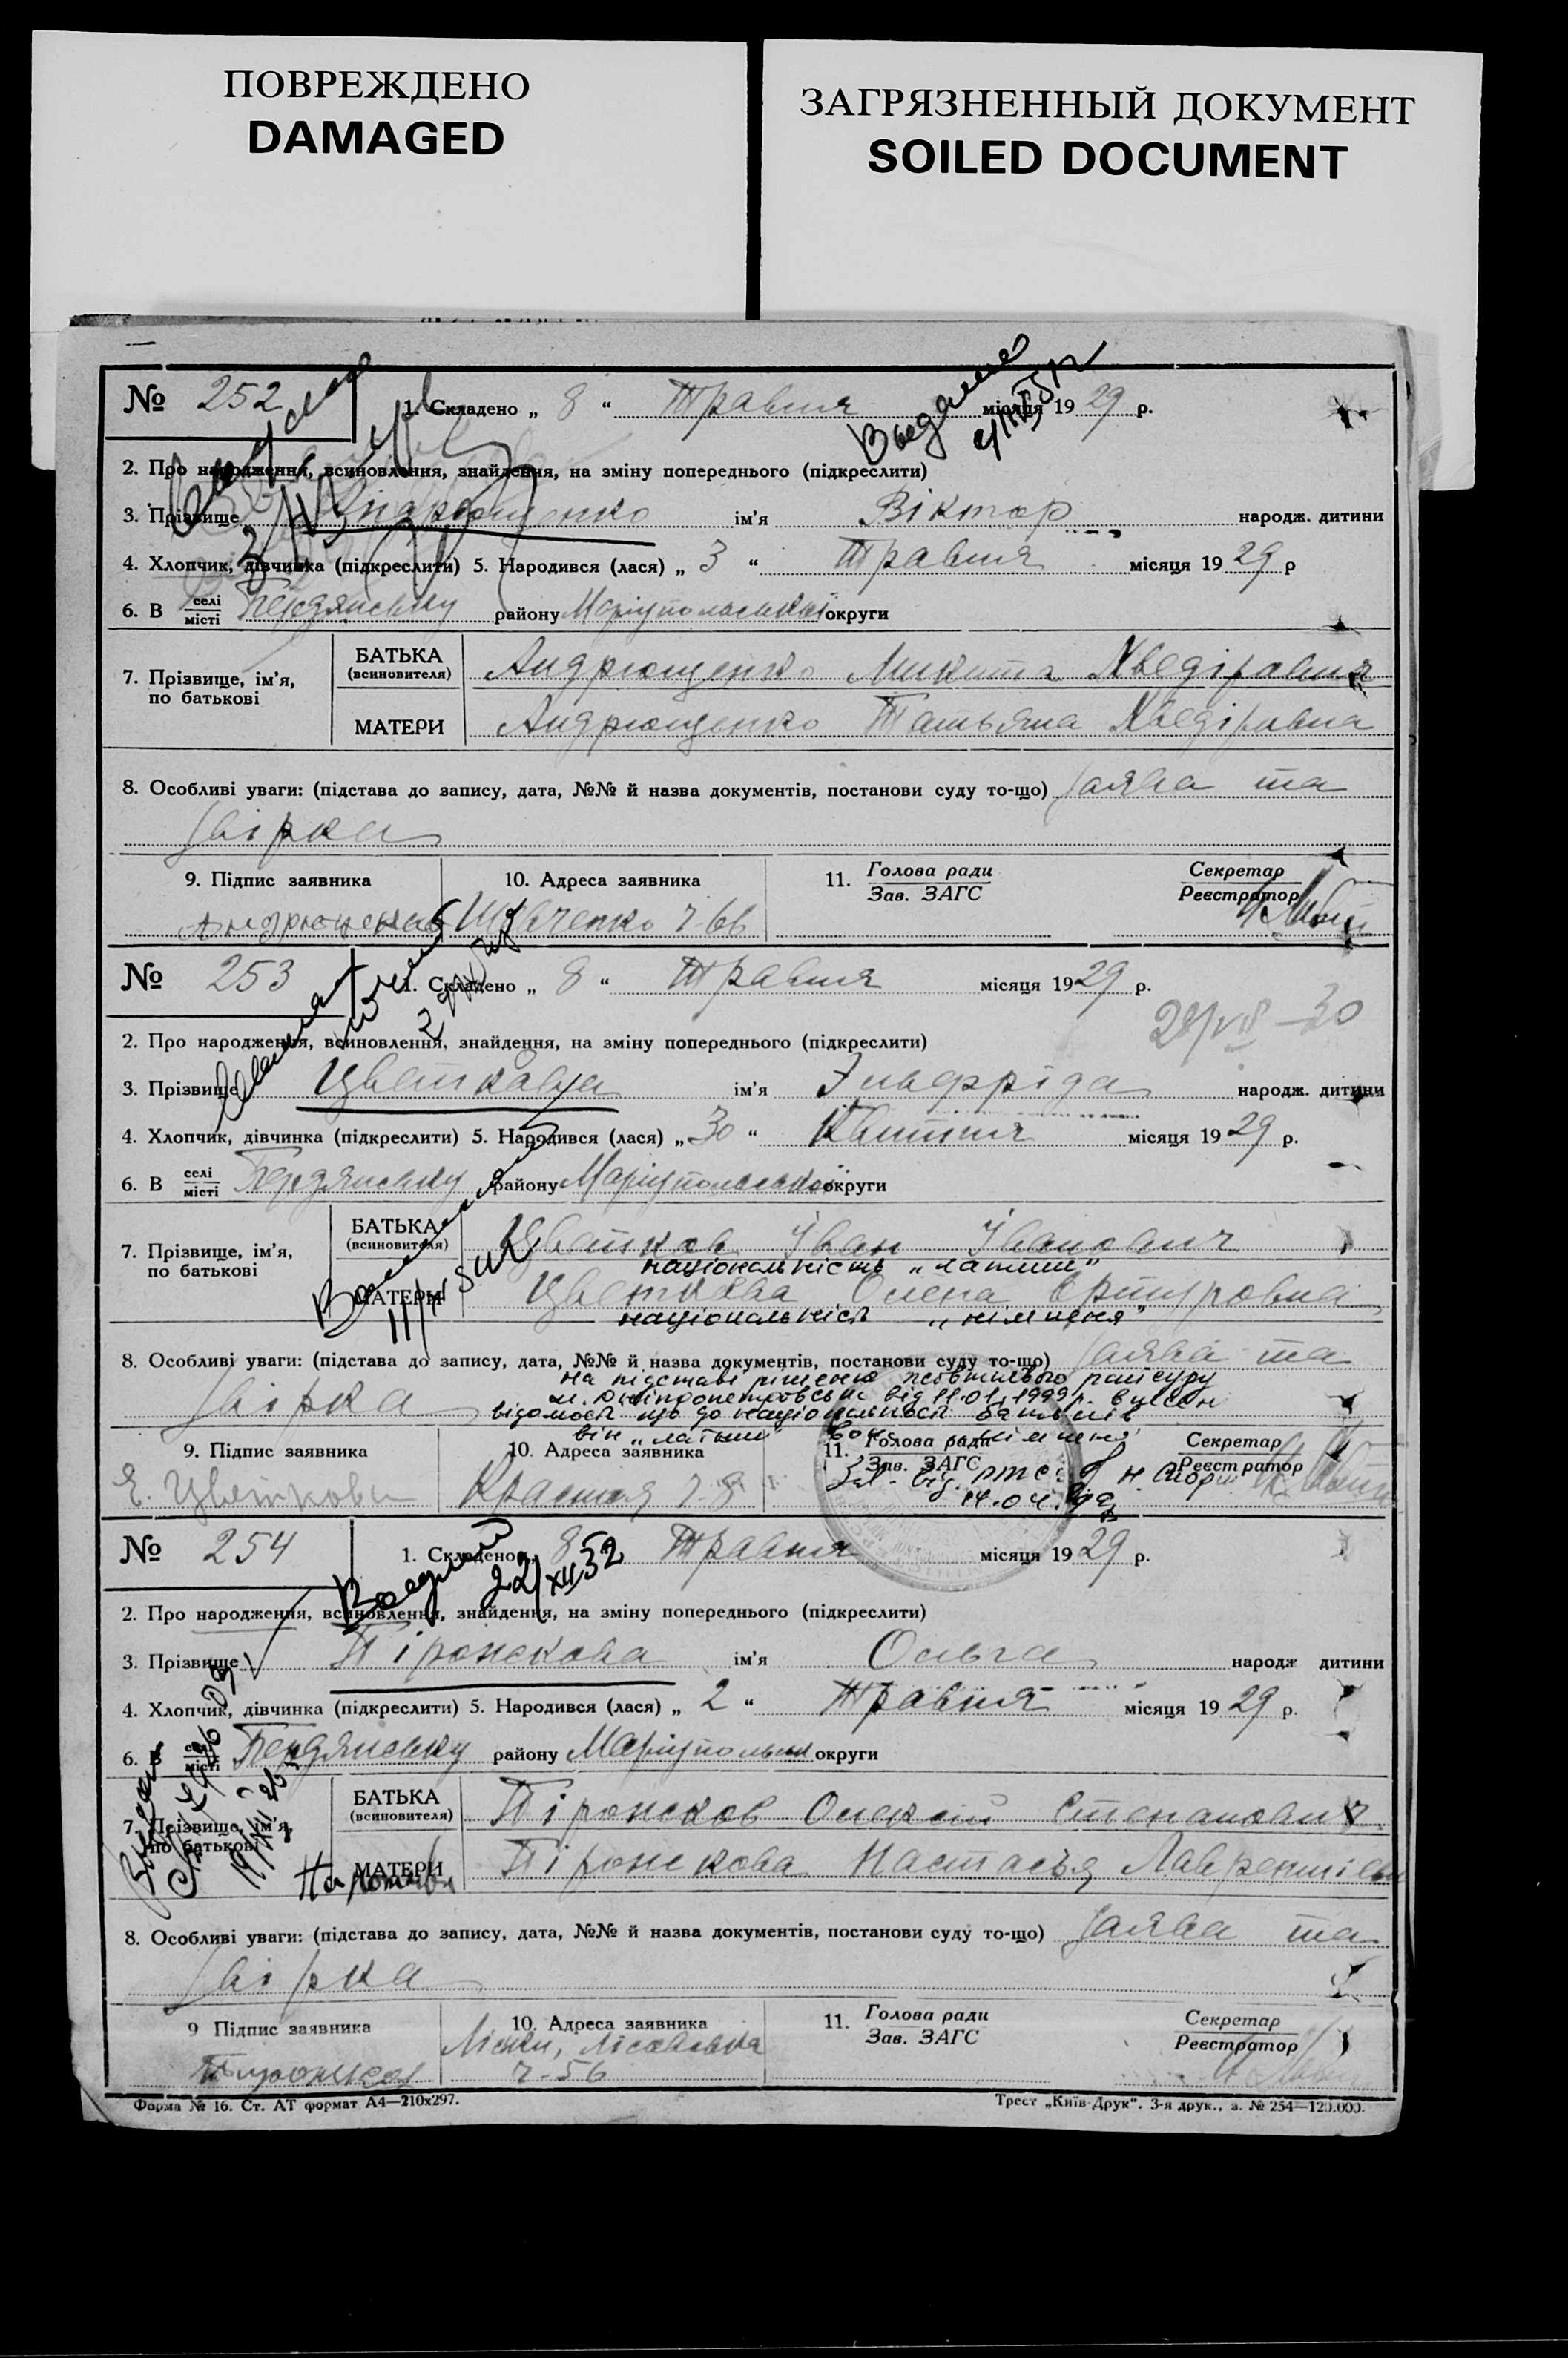 ПОВРЕЖДЕНО
DAMAGED
ЗАГРЯЗНЕННЫЙ ДОКУМЕНТ
SOILED DOCUMENT
№ 252 1. Складено „ 8 “ Травня місяця 1929 р.
2. Про народження, всиновлення, знайдення, на зміну попереднього (підкреслити)
3. Прізвище Андрющенко ім'я Віктор народж. дитини
4. Хлопчик, дівчинка (підкреслити) 5. Народився (лася) „ 3 “ Травня місяця 1929 р
6. В селі місті Бердянську району Маріупольської округи
7. Прізвище, ім'я, по батькові
БАТЬКА (всиновителя) Андрющенко Микита Хведірович
МАТЕРИ Андрющенко Татьяна Хведіровна
8. Особливі уваги: (підстава до запису, дата, №№ й назва документів, постанови суду то-що) Заява та
Звірка
9. Підпис заявника 10. Адреса заявника 11. Голова ради Зав. ЗАГС Секретар Реєстратор
Шевченко ч-66
№ 253 1. Складено „ 8 “ Травня місяця 1929 р.
29/VII-30
2. Про народження, всиновлення, знайдення, на зміну попереднього (підкреслити)
3. Прізвище Цветкова ім'я Эльфріда народж. дитини
4. Хлопчик, дівчинка (підкреслити) 5. Народився (лася) „ 30 “ Квітня місяця 1929 р.
6. В селі місті Бердянську району Маріупольської округи
7. Прізвище, ім'я, по батькові
БАТЬКА (всиновителя) Цветков Іван Іванович
національність „латиш"
МАТЕРИ Цветкова Олена Артуровна
національність „німкеня"
8. Особливі уваги: (підстава до запису, дата, №№ й назва документів, постанови суду то-що) Заява та
на підставі рішення Жовтневого райсуду
Звірка м. Дніпропетровськ від 11.01.1999 р. внесен
відомості що до національності батьків
він „латыш" вона „німкеня"
9. Підпис заявника 10. Адреса заявника 11. Голова ради Зав. ЗАГС Секретар Реєстратор
Е. Цветкова Красная ч-8
14.04.99
№ 254 1. Складено „ 8 “ Травня місяця 1929 р.
22/XII 52
2. Про народження, всиновлення, знайдення, на зміну попереднього (підкреслити)
3. Прізвище Піронскова ім'я Ольга народж дитини
4. Хлопчик, дівчинка (підкреслити) 5. Народився (лася) „ 2 “ Травня місяця 1929 р.
6. В селі місті Бердянську району Маріупольськ округи
7. Прізвище, ім'я, по батькові
БАТЬКА (всиновителя) Піронсков Олексій Степанович
МАТЕРИ Піронскова Настасья Лаврентієвн
8. Особливі уваги: (підстава до запису, дата, №№ й назва документів, постанови суду то-що) Заява та
Звірка
9 Підпис заявника 10. Адреса заявника 11. Голова ради Зав. ЗАГС Секретар Реєстратор
ч-56
Форма № 16. Ст. АТ формат А4—210х297.
Трест „Київ-Друк“. 3-я друк., з. № 254—120.000.